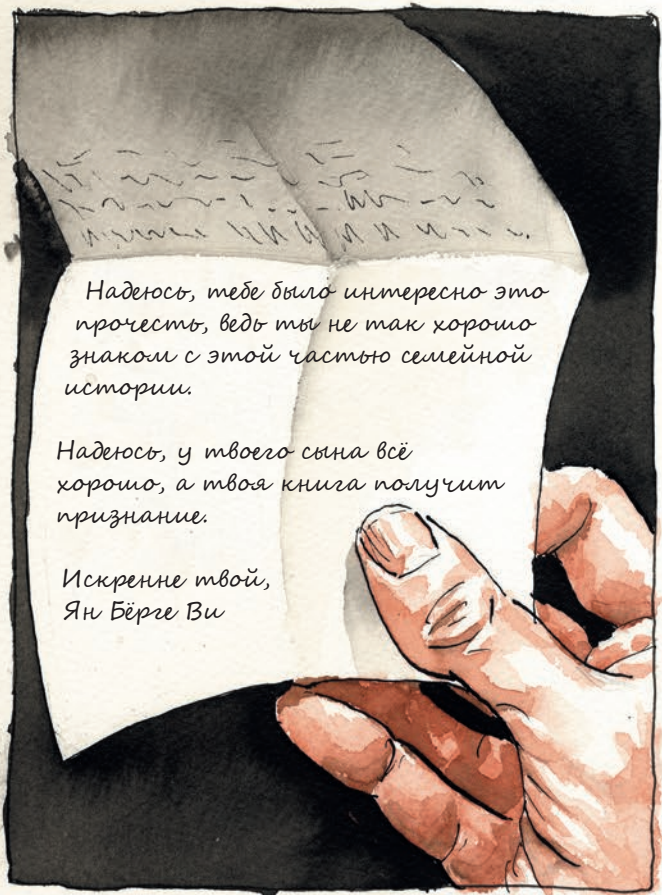 Надеюсь, тебе было интересно это
прочесть, ведь ты не так хорошо
знаком с этой частью семейной
истории.
Надеюсь, у твоего сына всё
хорошо, а твоя книга получит
признание.
Искренне твой,
Ян Бёрге Ви